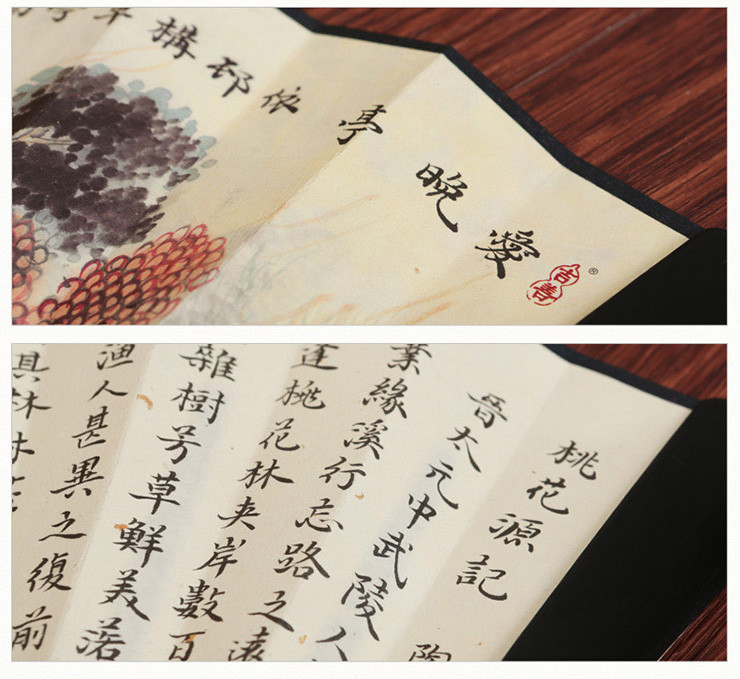 愛晚亭依邨構草
吉善®
桃花源記
晉太元中武陵人
業緣溪行忘路之遠
逢桃花林夾岸數百
雜樹芳草鮮美落
漁人甚異之復前
其林林